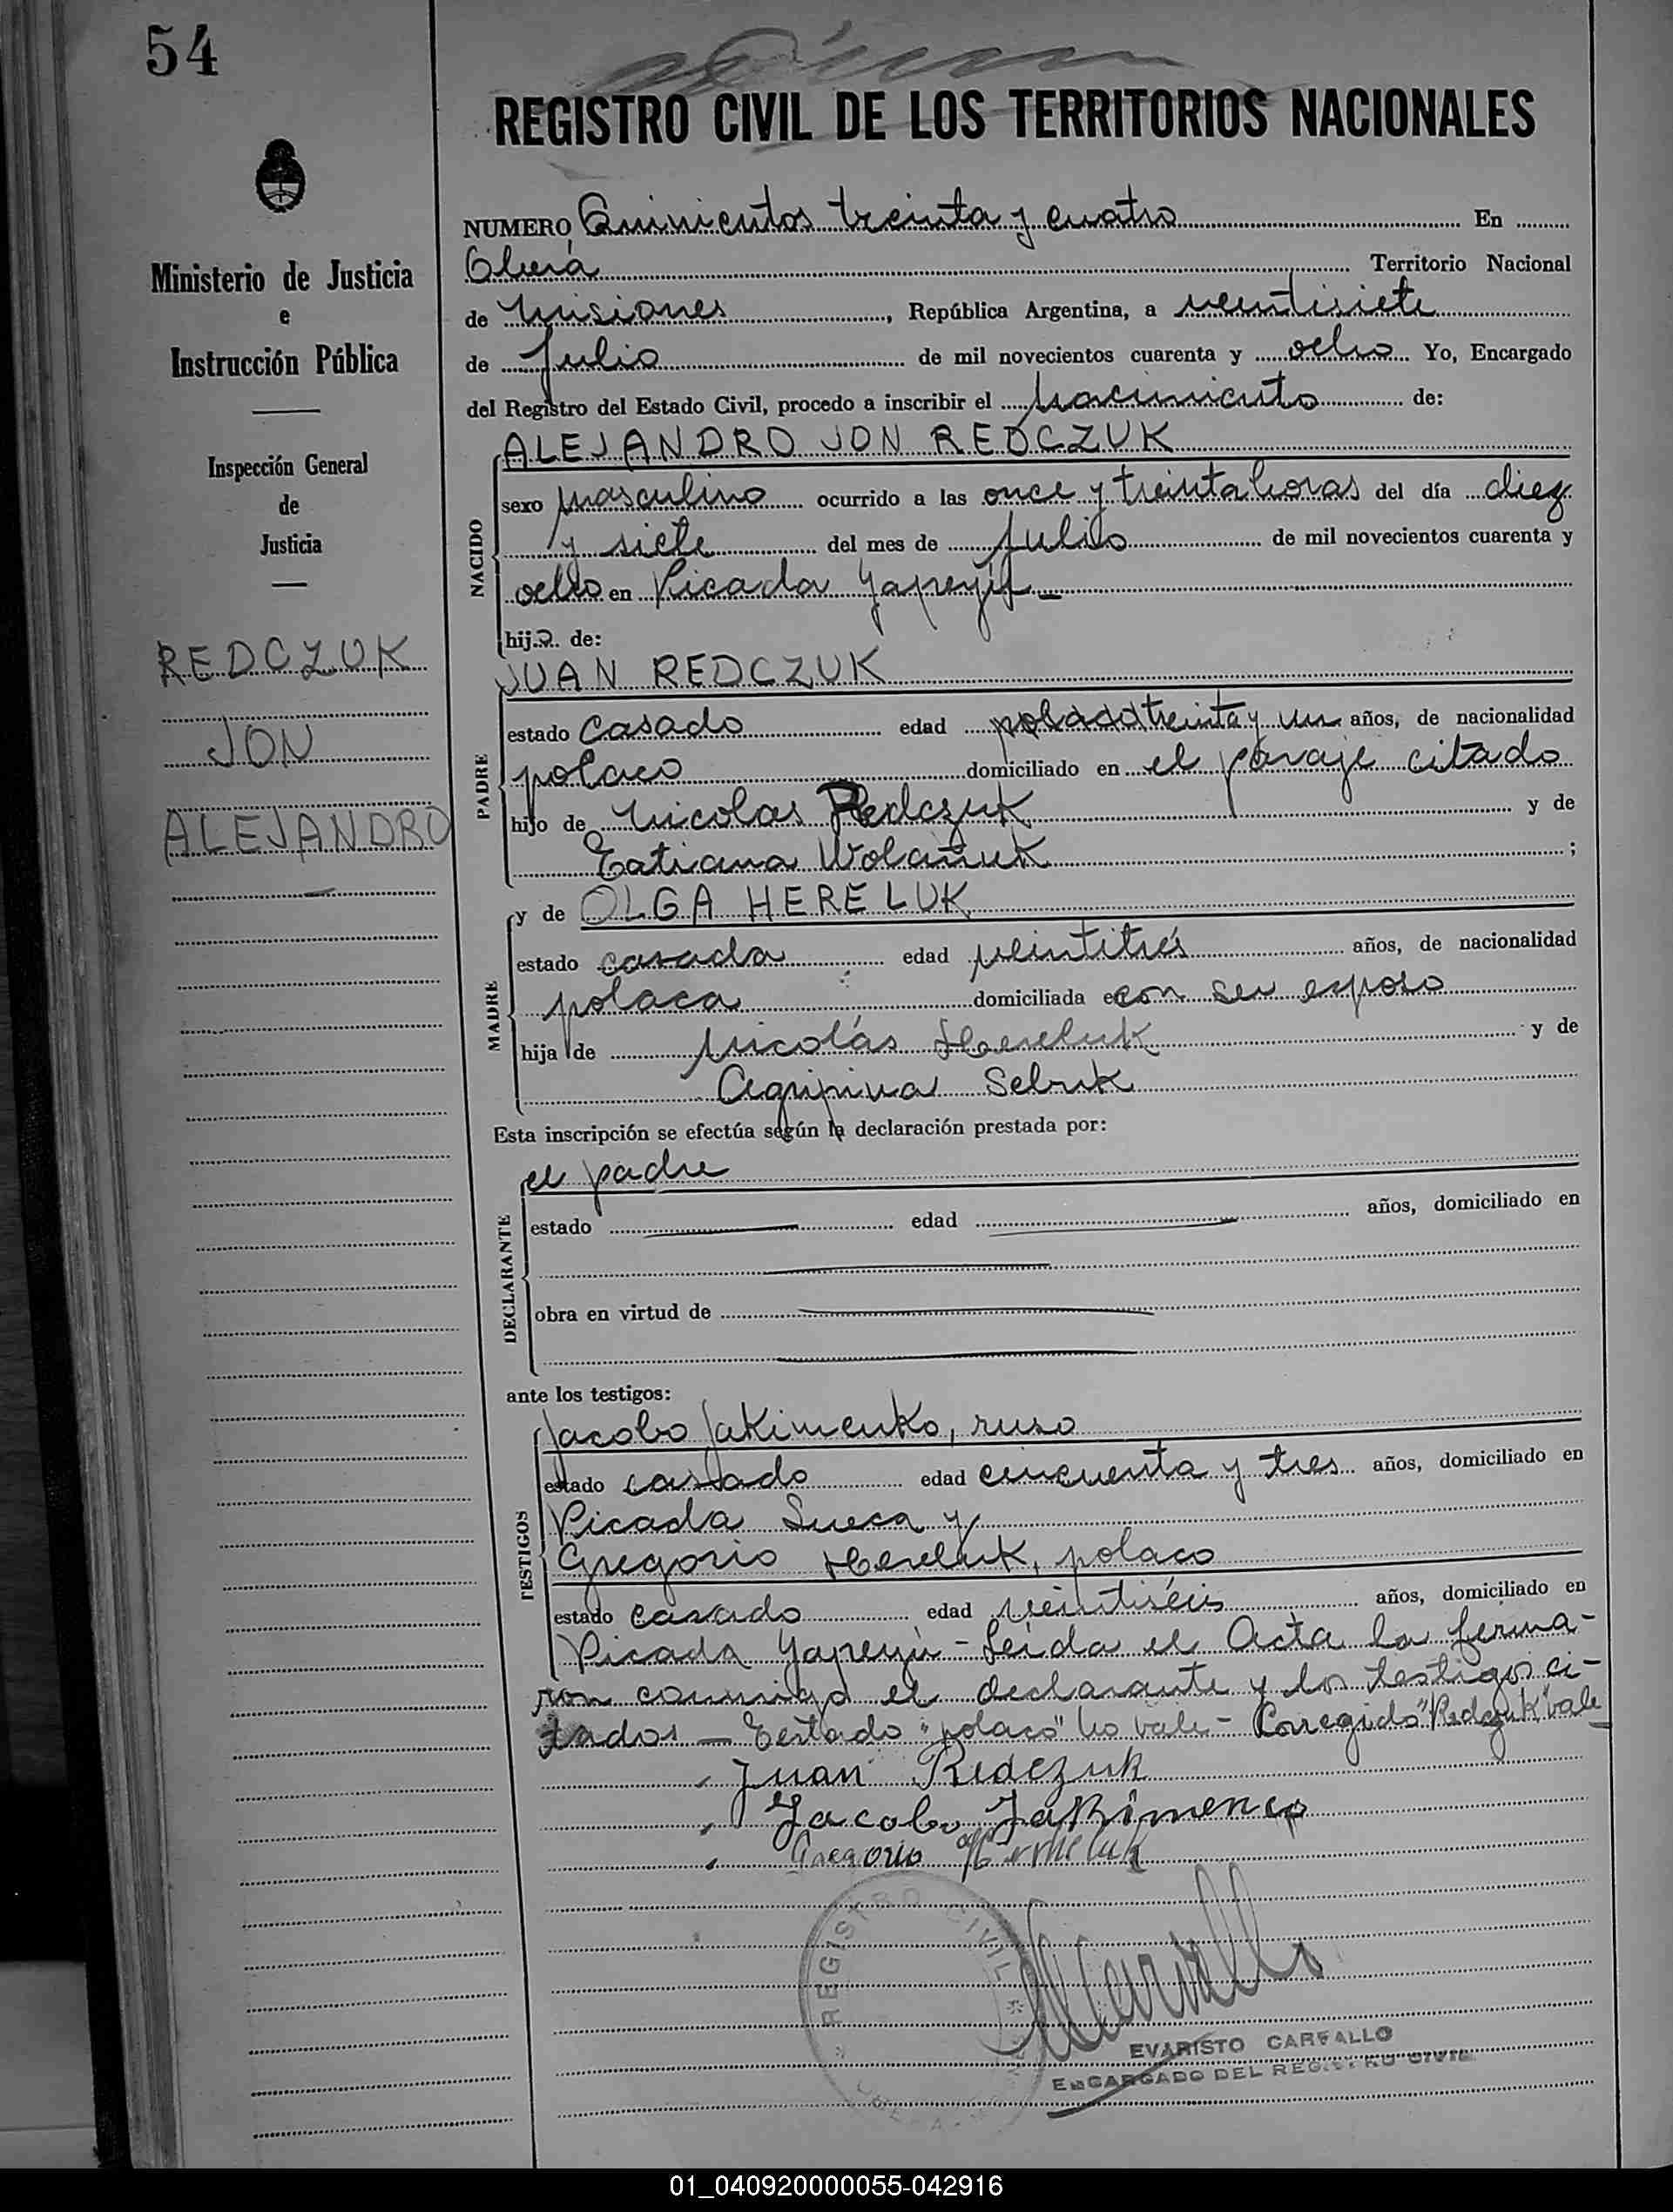 54
REGISTRO CIVIL DE LOS TERRITORIOS NACIONALES
Ministerio de Justicia
e
Instrucción Pública
Inspección General
de
Justicia
REDCZUK
JON
ALEJANDRO
NUMERO Quinientos treinta y cuatro En
Oberá Territorio Nacional
de Misiones, República Argentina, a veintisiete
de Julio de mil novecientos cuarenta y ocho Yo, Encargado
del Registro del Estado Civil, procedo a inscribir el Nacimiento de:
NACIDO
ALEJANDRO JON REDCZUK
sexo masculino ocurrido a las once y treinta horas del día diez
y siete del mes de Julio de mil novecientos cuarenta y
ocho en Picada Yapeyú
hijo de:
PADRE
JUAN REDCZUK
estado casado edad polaco treinta y un años, de nacionalidad
polaco domiciliado en el paraje citado
hijo de Nicolas Redczuk y de
Tatiana Wolañuk;
MADRE
y de OLGA HERELUK
estado casada edad veintitrés años, de nacionalidad
polaca domiciliada con su esposo
hija de Nicolás Hereluk y de
Agripina Selruk
Esta inscripción se efectúa según la declaración prestada por:
DECLARANTE
el padre
estado edad años, domiciliado en
obra en virtud de
ante los testigos:
TESTIGOS
Jacobo Jakimenko, ruso
estado casado edad cincuenta y tres años, domiciliado en
Picada Sueca y
Gregorio Hereluk, polaco
estado casado edad veintiséis años, domiciliado en
Picada Yapeyú - Leída el Acta la firma-
ron conmigo el declarante y los testigos ci-
tados — Testado "polaco" no vale - Corregido "Redczuk" vale
Juan Redczuk
Jacobo Jakimenco
Gregorio
REGISTRO CIVIL
EVARISTO CARVALLO
ENCARGADO DEL REGISTRO CIVIL
01_040920000055-042916